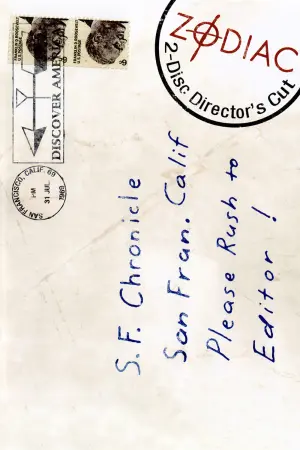 ZODIAC
2-Disc Director's Cut
DISCOVER AMERICA
SAN FRANCISCO, CALIF. 69
PM
31 JUL
1969
S.F. Chronicle
San Fran. Calif
Please Rush to
Editor !